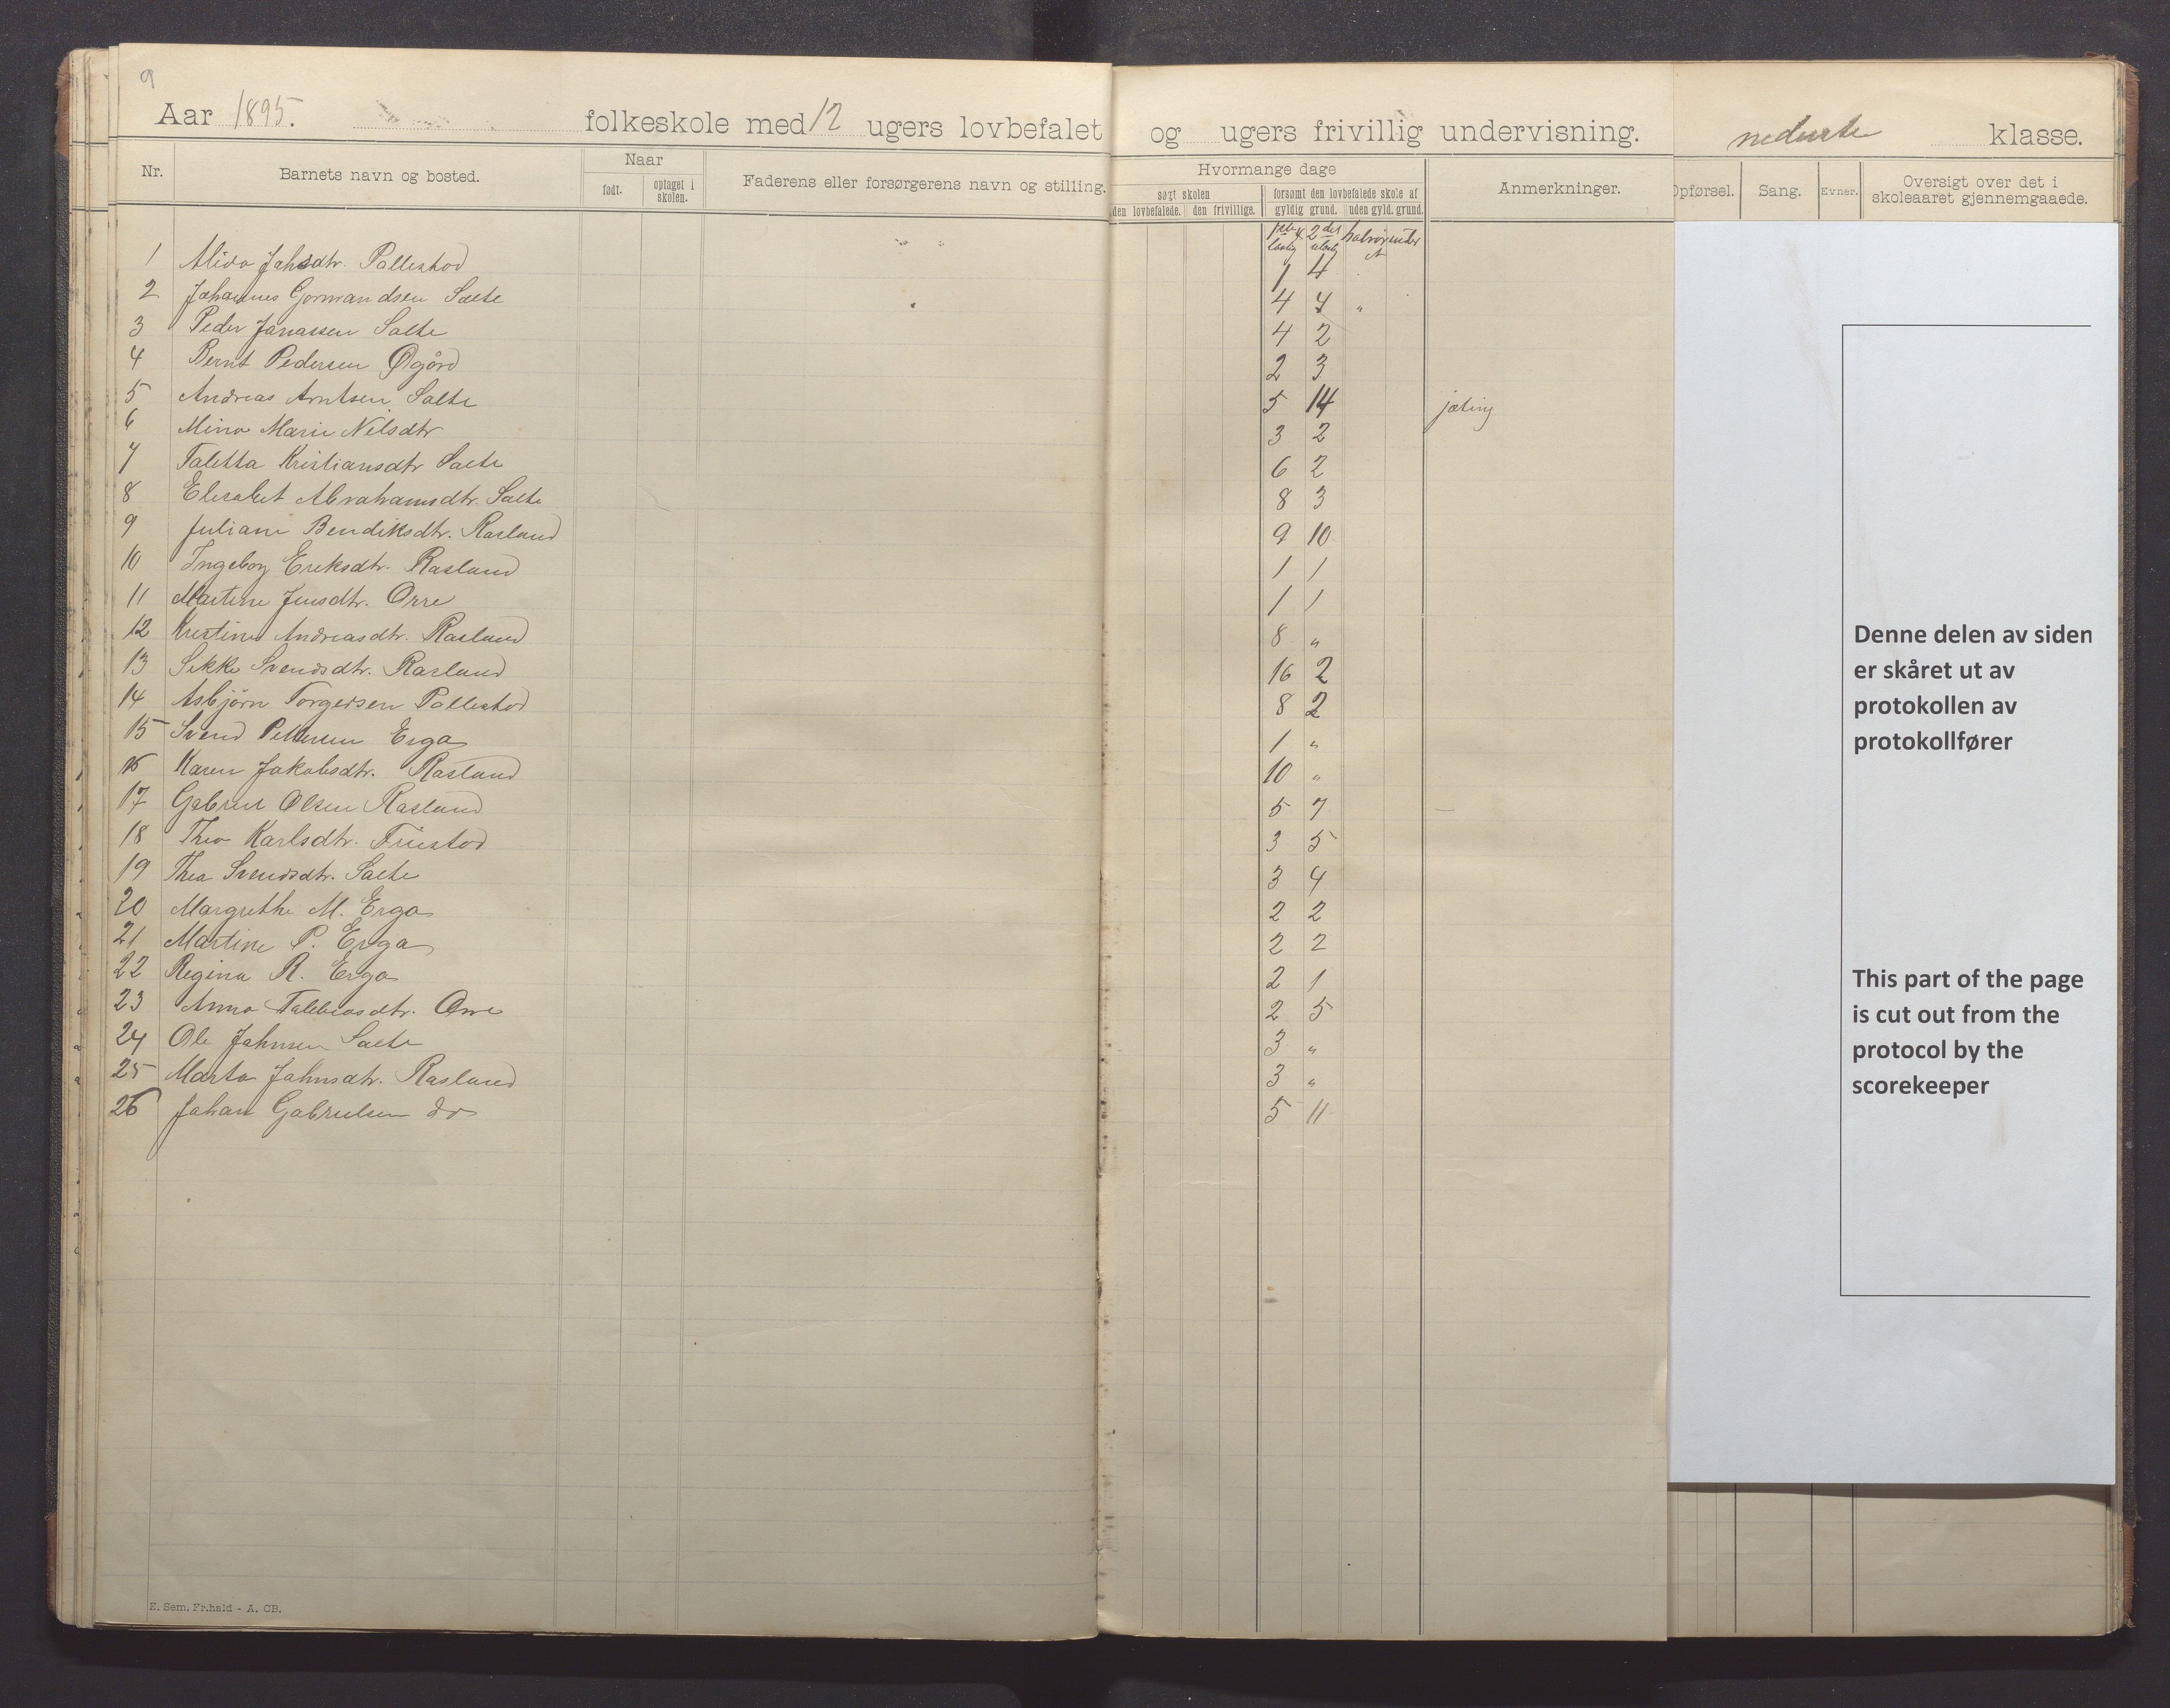 9
Aar 1895. folkeskole med 12 ugers lovbefalet og ugers frivillig undervisning. nederste klasse.
Nr. Barnets navn og bosted. Naar født. optaget i skolen. Faderens eller forsørgerens navn og stilling. Hvormange dage søgt skolen den lovbefalede. den frivillige. forsømt den lovbefalede skole af gyldig grund. uden gyld. grund. Anmerkninger. Opførsel. Sang. Evner. Oversigt over det i skoleaaret gjennemgaaede.
1 Alida Jahsdtr. Pollestad 1 4
2 Johannes Gormandsen Salte 4 4 "
3 Peder Janassen Salte 4 2
4 Bernt Pedersen Øgård 2 3
5 Andreas Arntsen Salte 5 14 jæting
6 Mina Marie Nilsdtr 3 2
7 Taletta Kristiansdtr Salte 6 2
8 Elisabet Abrahamsdtr. Salte 8 3
9 Juliane Bendiksdtr. Rasland 9 10
10 Ingeborg Eriksdtr. Rasland 1 1
11 Martine Jensdtr. Orre 1 1
12 Kristine Andreasdtr. Rasland 8 "
13 Sikke Svendsdtr. Rasland 16 2
14 Asbjørn Torgersen Pollestad 8 2
15 Svend Pettersen Erga 1 "
16 Karen Jakobsdtr. Rasland 10 "
17 Gabriel Olsen Rasland 5 7
18 Thea Karlsdtr. Friestad 3 5
19 Thea Svendsdtr. Salte 3 4
20 Margrethe M. Erga 2 2
21 Martine P. Erga 2 2
22 Regina R. Erga 2 1
23 Anna Tallehasdtr. Orre 2 5
24 Ole Jahnsen Salte 3 "
25 Marta Jahnsdtr. Rasland 3 "
26 Johan Gabrielsen do 5 11
Denne delen av siden
er skåret ut av
protokollen av
protokollfører
This part of the page
is cut out from the
protocol by the
scorekeeper
E. Sem. Fr.hald - A. CB.